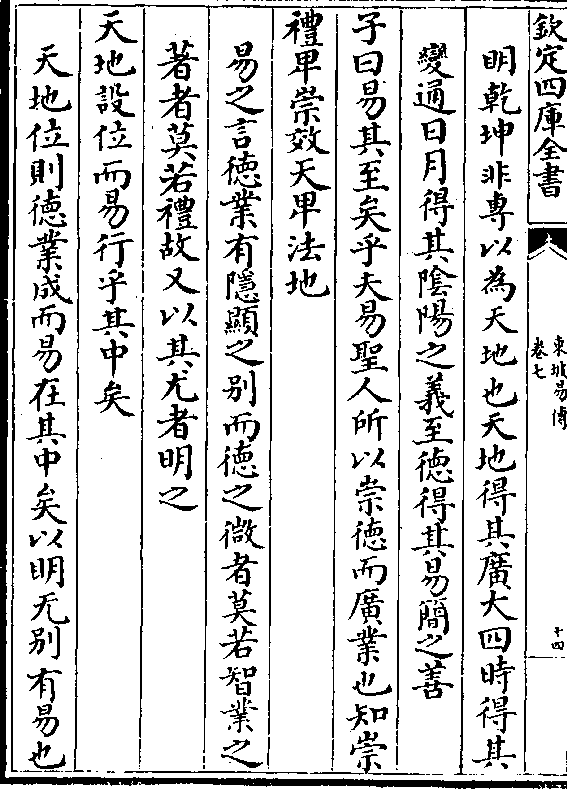 欽定四庫全書
東坡易傳
卷七
十四
明乾坤非專以為天地也天地得其廣大四時得其
變通日月得其陰陽之義至德得其易簡之善
子曰易其至矣乎夫易聖人所以崇德而廣業也知崇
禮卑崇效天卑法地
易之言德業有隱顯之别而德之微者莫若智業之
著者莫若禮故又以其尤者明之
天地設位而易行乎其中矣
天地位則德業成而易在其中矣以明无别有易也